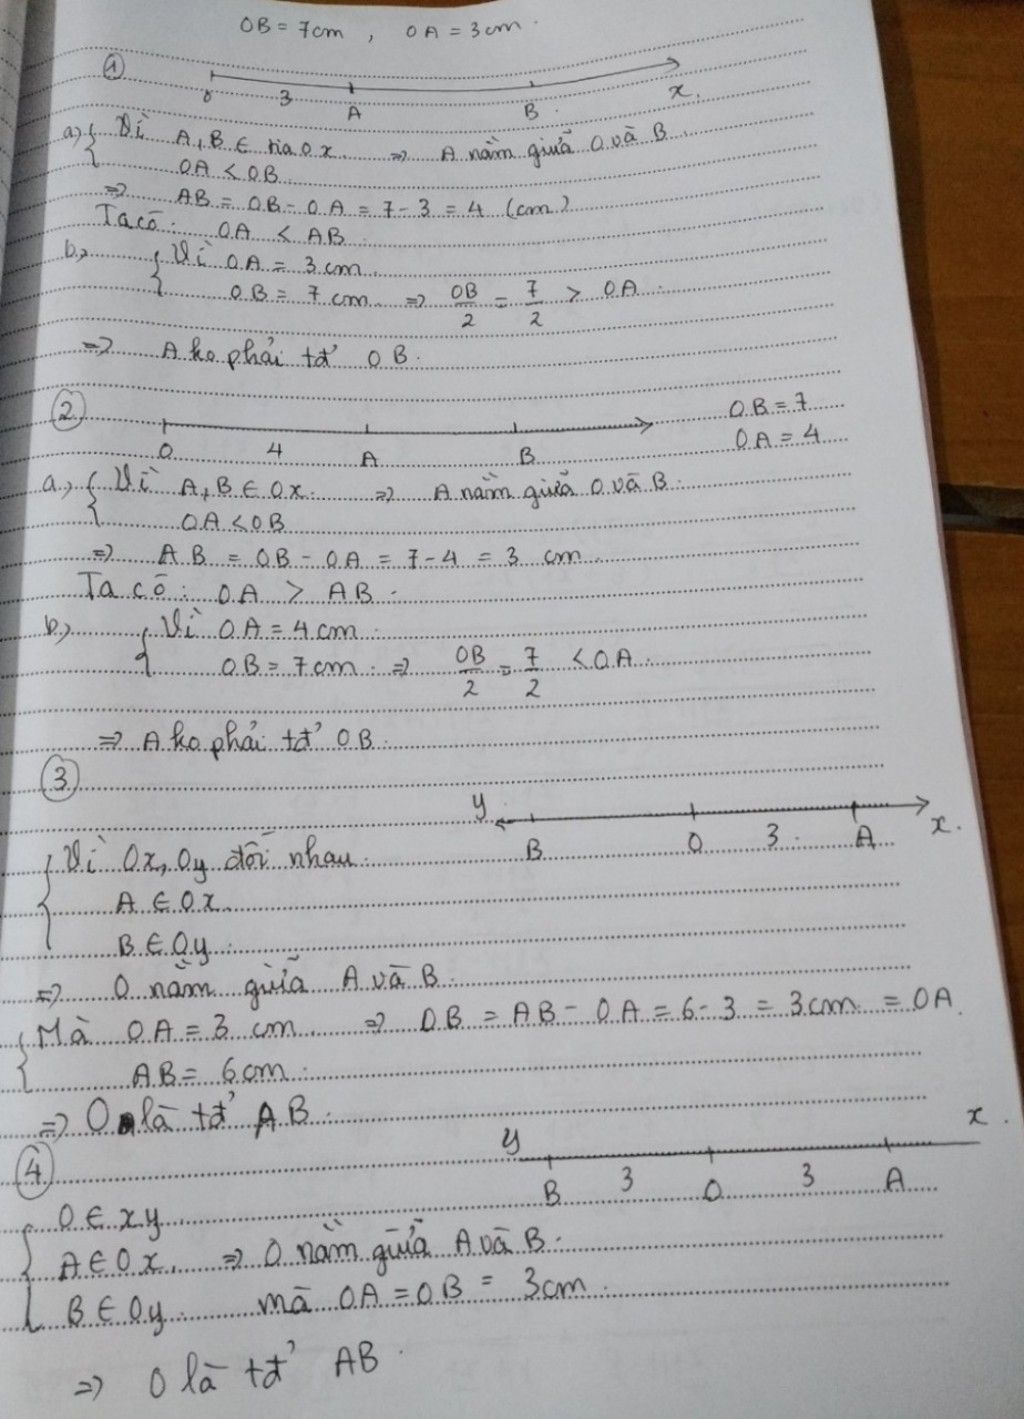 OB = 7cm , OA = 3cm.
1
O 3 A B x
a, { Vì A, B ∈ tia Ox. => A nằm giữa O và B.
OA < OB
=> AB = OB - OA = 7 - 3 = 4 (cm)
Ta có: OA < AB
b, { Vì OA = 3cm.
OB = 7cm => OB/2 = 7/2 > OA.
=> A ko phải tđ' OB.
2
OB = 7
OA = 4
O 4 A B
a, { Vì A, B ∈ Ox. => A nằm giữa O và B.
OA < OB
=> AB = OB - OA = 7 - 4 = 3 cm.
Ta có: OA > AB.
b, { Vì OA = 4cm.
OB = 7cm. => OB/2 = 7/2 < OA.
=> A ko phải tđ' OB.
3
y B O 3 A x.
{ Vì Ox, Oy đối nhau.
A ∈ Ox.
B ∈ Oy.
=> O nằm giữa A và B.
{ Mà OA = 3 cm. => OB = AB - OA = 6 - 3 = 3cm = OA.
AB = 6cm.
=> O là tđ' AB.
4
y B 3 O 3 A x.
{ O ∈ xy
A ∈ Ox. => O nằm giữa A và B.
B ∈ Oy. mà OA = OB = 3cm.
=> O là tđ' AB.